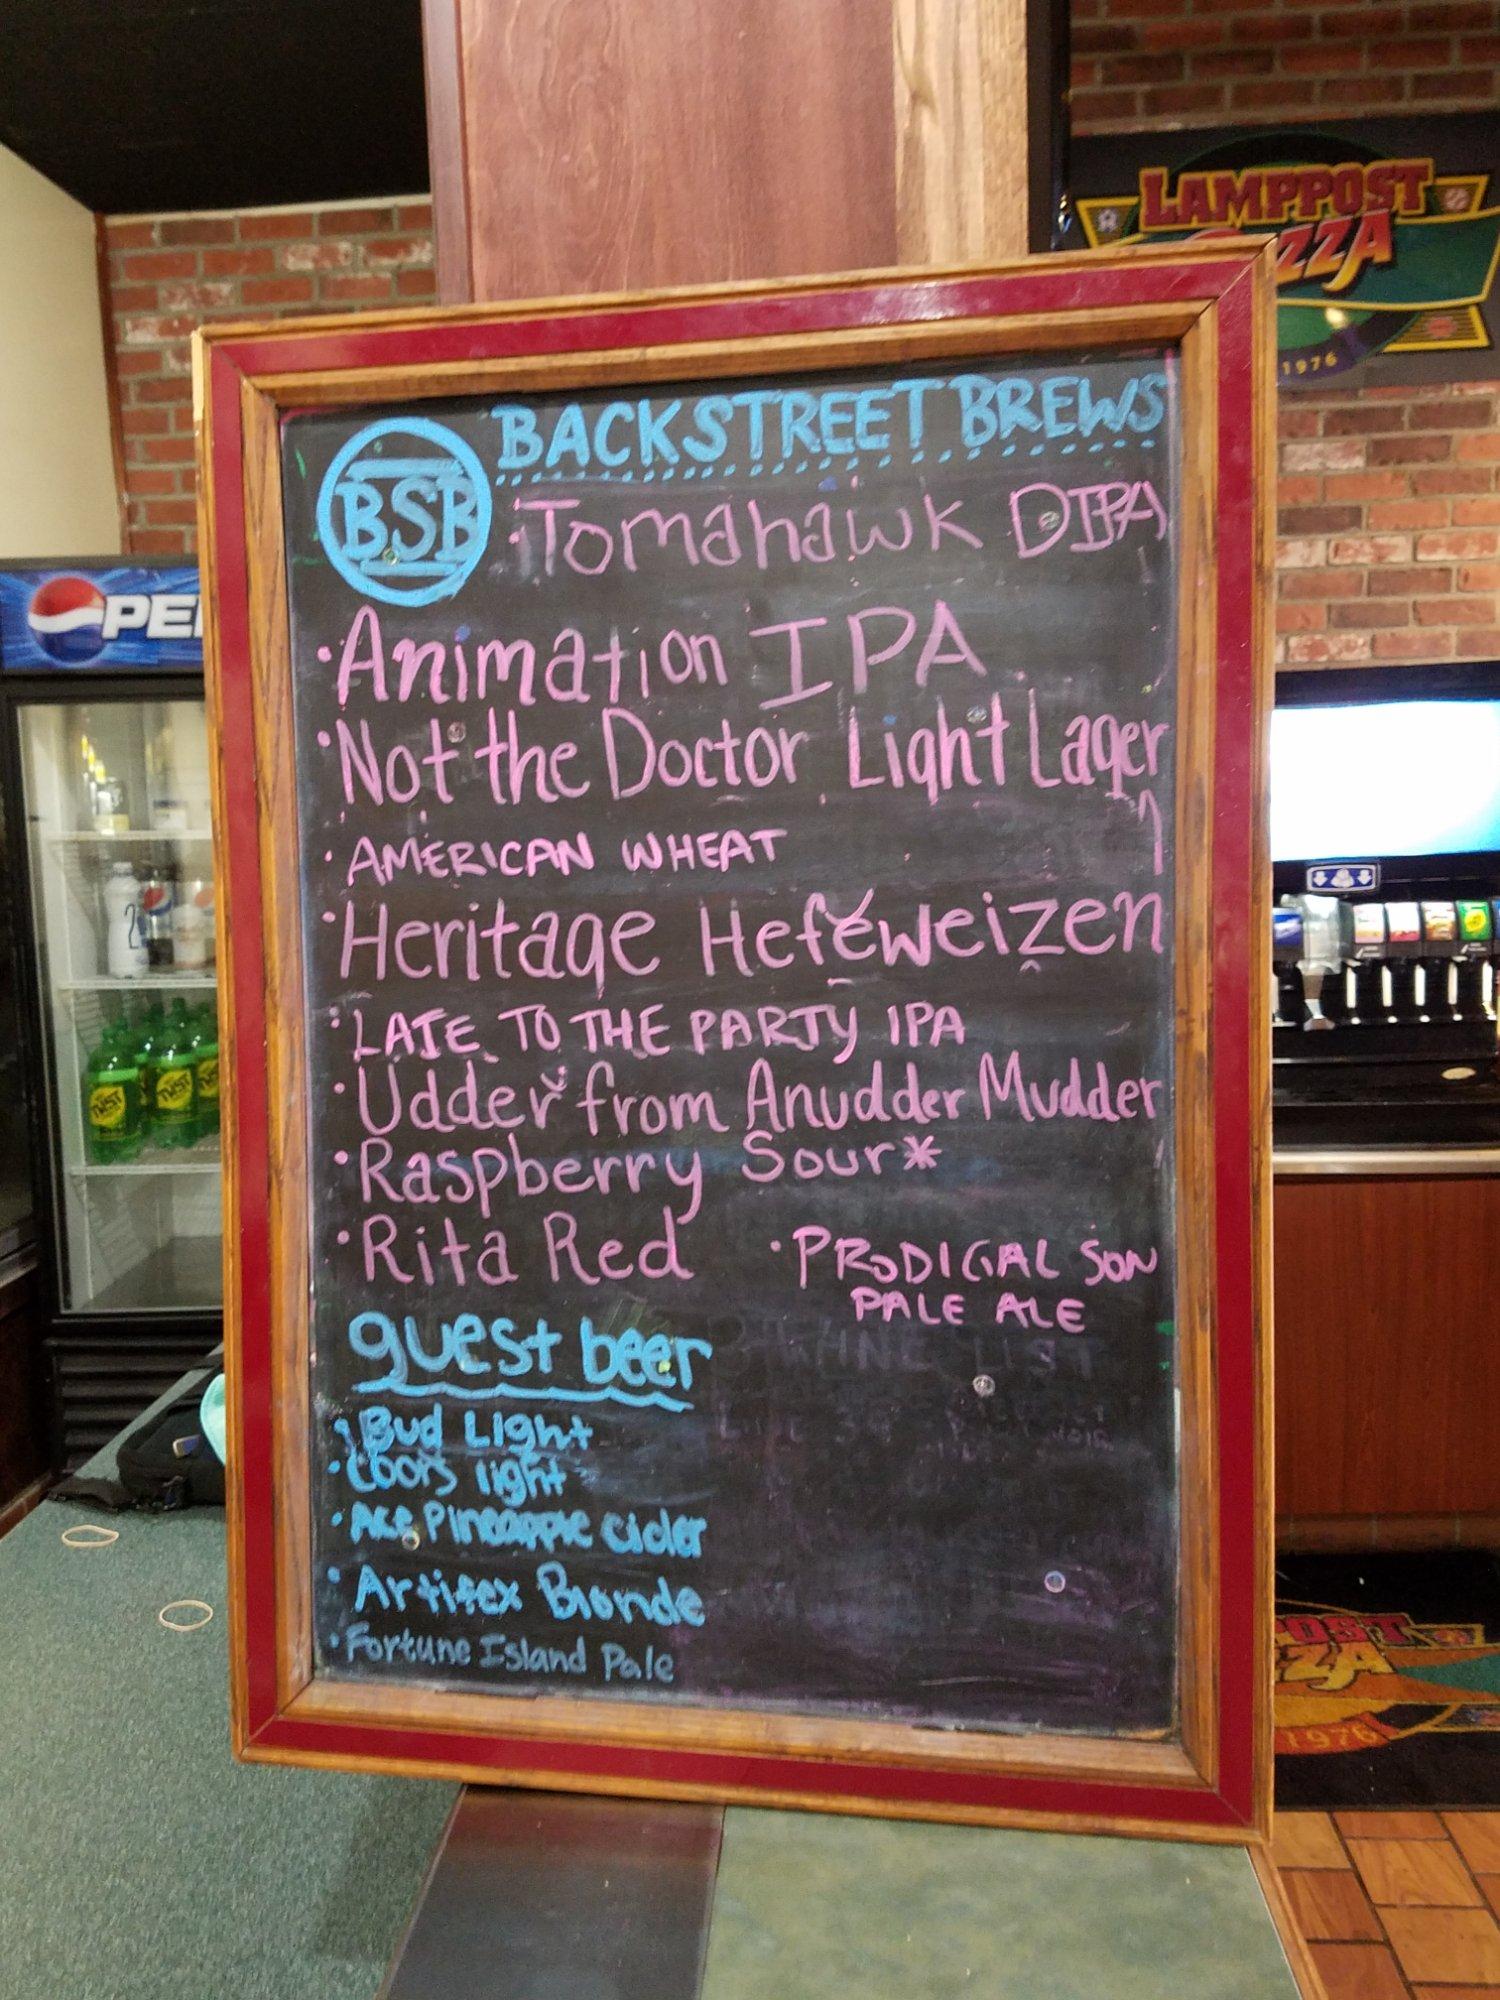 LAMPPOST
PIZZA
1976
BACKSTREET BREWS
BSB
· Tomahawk DIPA
· Animation IPA
· Not the Doctor Light Lager
· AMERICAN WHEAT
· Heritage Hefeweizen
· LATE TO THE PARTY IPA
· Udder from Anudder Mudder
· Raspberry Sour*
· Rita Red
· PRODIGAL SON
PALE ALE
guest beer
· Bud Light
· Coors light
· Ace Pineapple cider
· Artifex Blonde
· Fortune Island Pale
PE
TWIST
POST
ZZA
1976